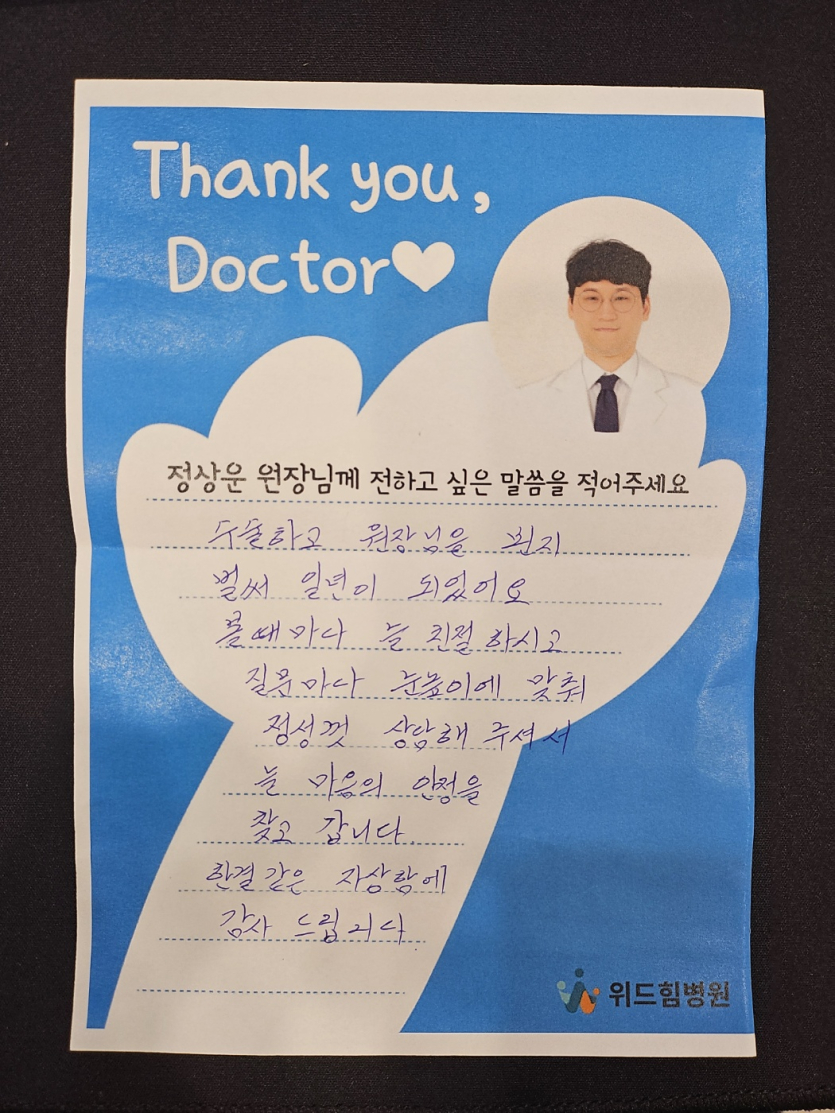 Thank you,
Doctor
정상운 원장님께 전하고 싶은 말씀을 적어주세요
수술하고 원장님을 뵌지
벌써 일년이 되었어요
볼때마다 늘 친절하시고
질문마다 눈높이에 맞춰
정성껏 상담해 주셔서
늘 마음의 안정을
찾고 갑니다.
한결같은 자상함에
감사 드립니다
위드힘병원